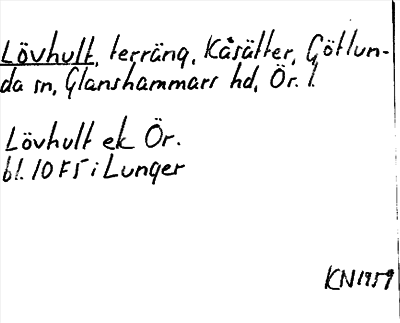 Lövhult, terräng, Kåsätter, Götlun-
da sn, Glanshammars hd, Ör. l.
Lövhult ek Ör.
bl. 10 F5 i Lunger
KN 1959